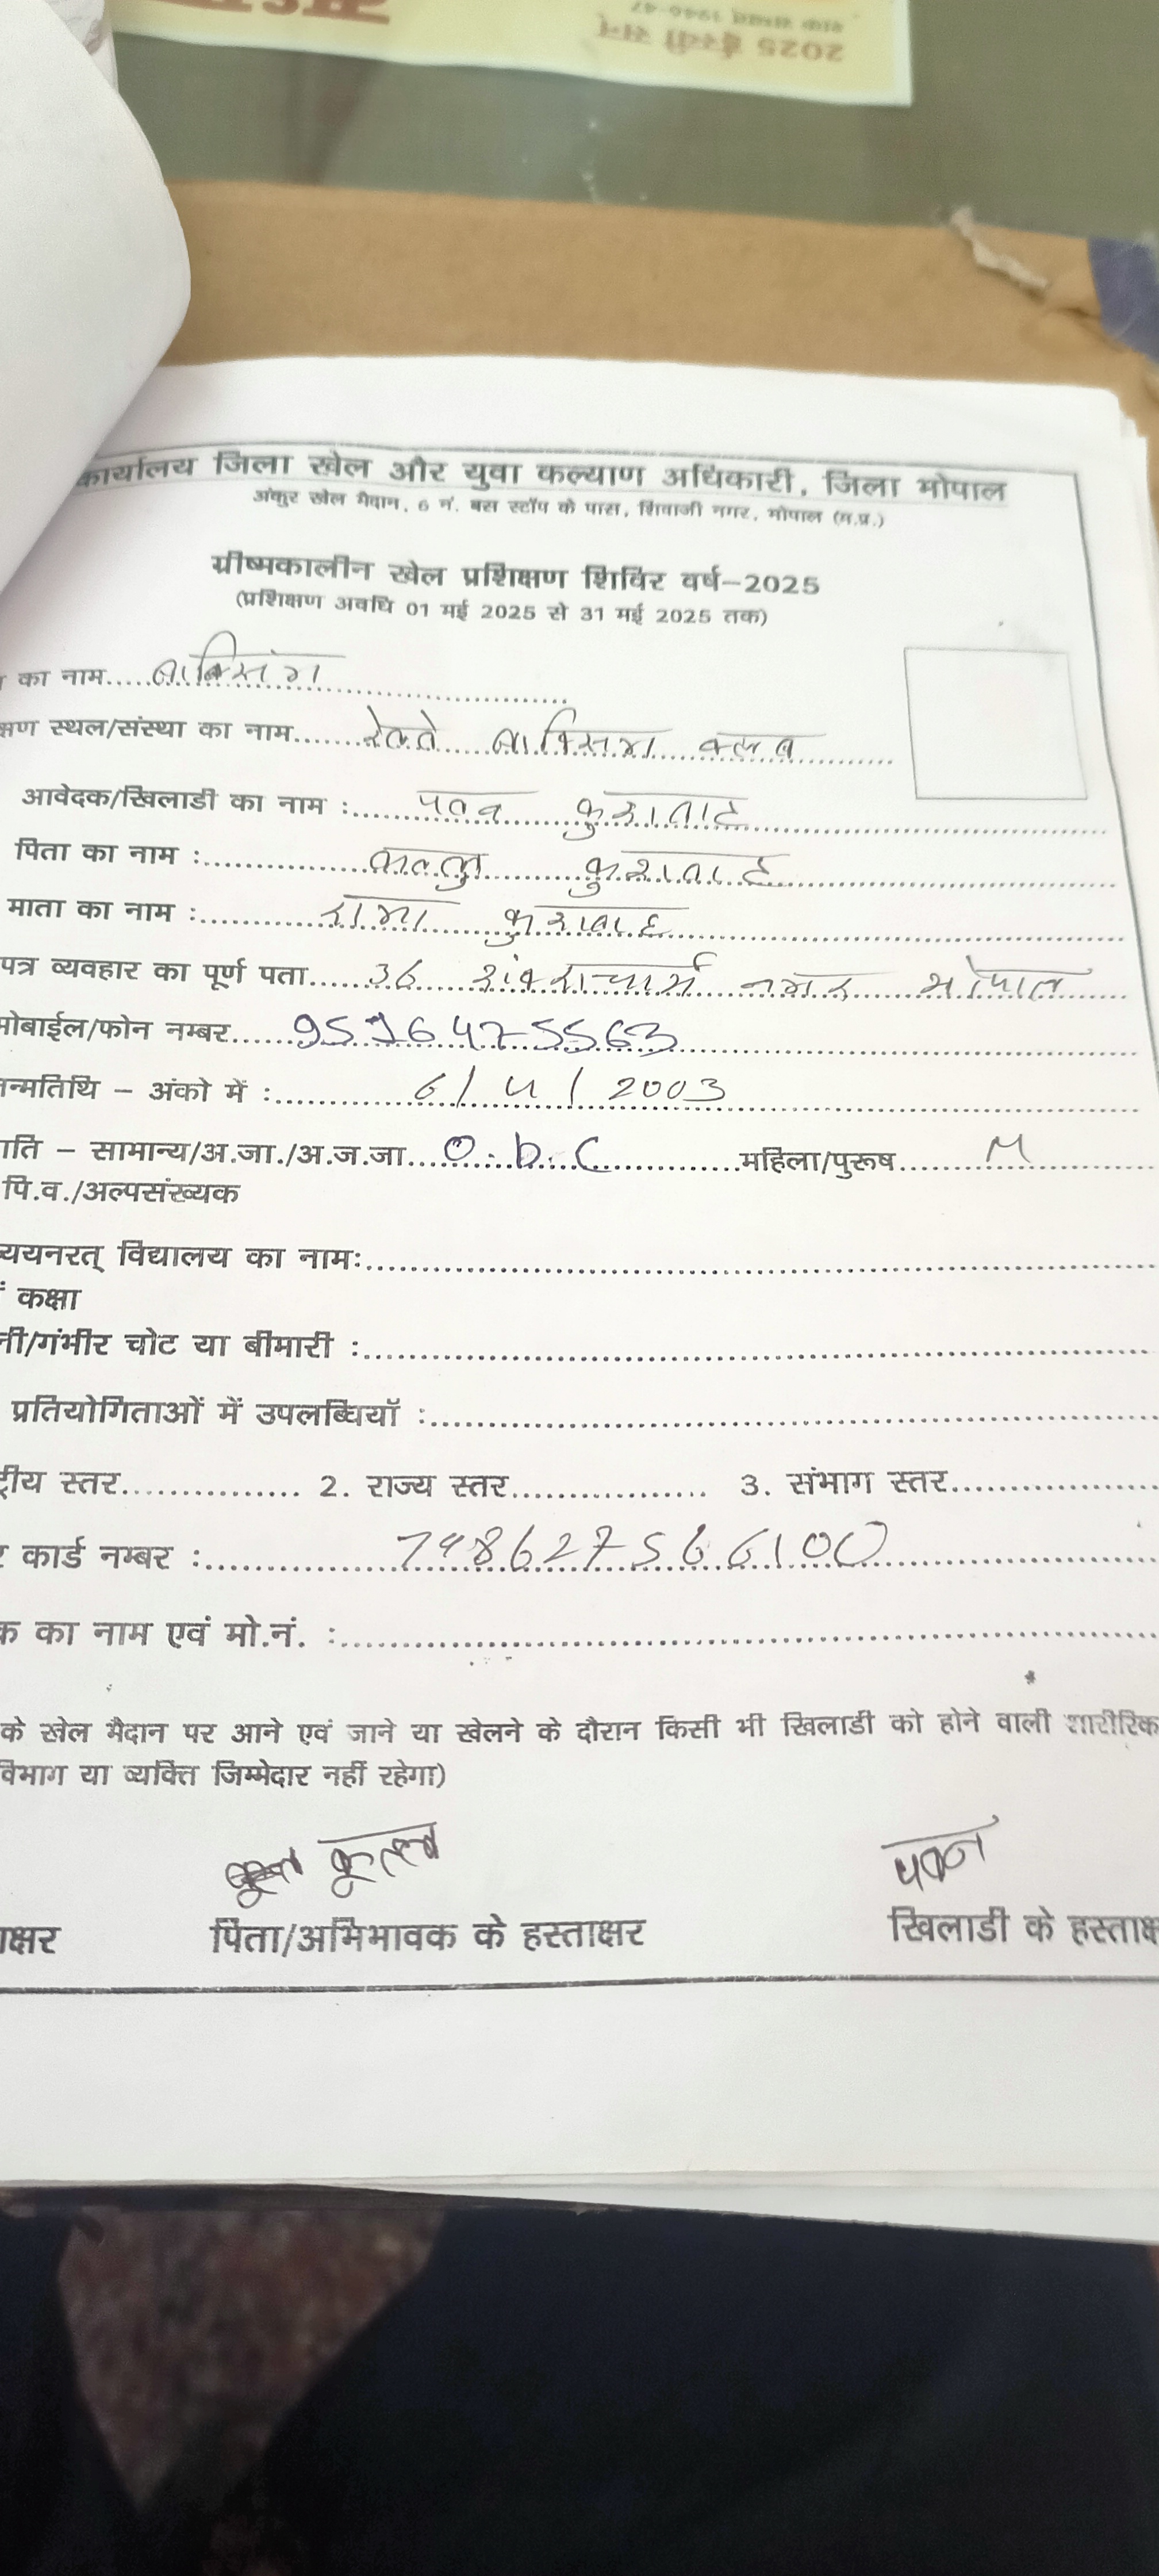 2025 ईस्वी सन्
कार्यालय जिला खेल और युवा कल्याण अधिकारी, जिला भोपाल
अंकुर खेल मैदान, 6 नं. बस स्टॉप के पास, शिवाजी नगर, भोपाल (म.प्र.)
ग्रीष्मकालीन खेल प्रशिक्षण शिविर वर्ष–2025
(प्रशिक्षण अवधि 01 मई 2025 से 31 मई 2025 तक)
का नाम..... बाक्सिंग
क्षण स्थल/संस्था का नाम....... रेलवे बाक्सिंग क्लब
आवेदक/खिलाडी का नाम :..... पवन कुशवाह
पिता का नाम :..... कालु कुशवाह
माता का नाम :..... रामा कुशवाह
पत्र व्यवहार का पूर्ण पता..... 36 शंकराचार्य नगर भोपाल
मोबाईल/फोन नम्बर......
न्मतिथि – अंको में :..... 6/4/2003
ाति – सामान्य/अ.जा./अ.ज.जा.... O.b.C ..... महिला/पुरूष..... M
पि.व./अल्पसंख्यक
ययनरत् विद्यालय का नामः.....
कक्षा
नी/गंभीर चोट या बीमारी :.....
प्रतियोगिताओं में उपलब्धियॉ :.....
ट्रीय स्तर............... 2. राज्य स्तर.................. 3. संभाग स्तर.....
र कार्ड नम्बर :..... 748627566100
क का नाम एवं मो.नं. :.....
के खेल मैदान पर आने एवं जाने या खेलने के दौरान किसी भी खिलाडी को होने वाली शारीरिक
विभाग या व्यक्ति जिम्मेदार नहीं रहेगा)
पवन
ाक्षर पिता/अभिभावक के हस्ताक्षर खिलाडी के हस्ताक्ष